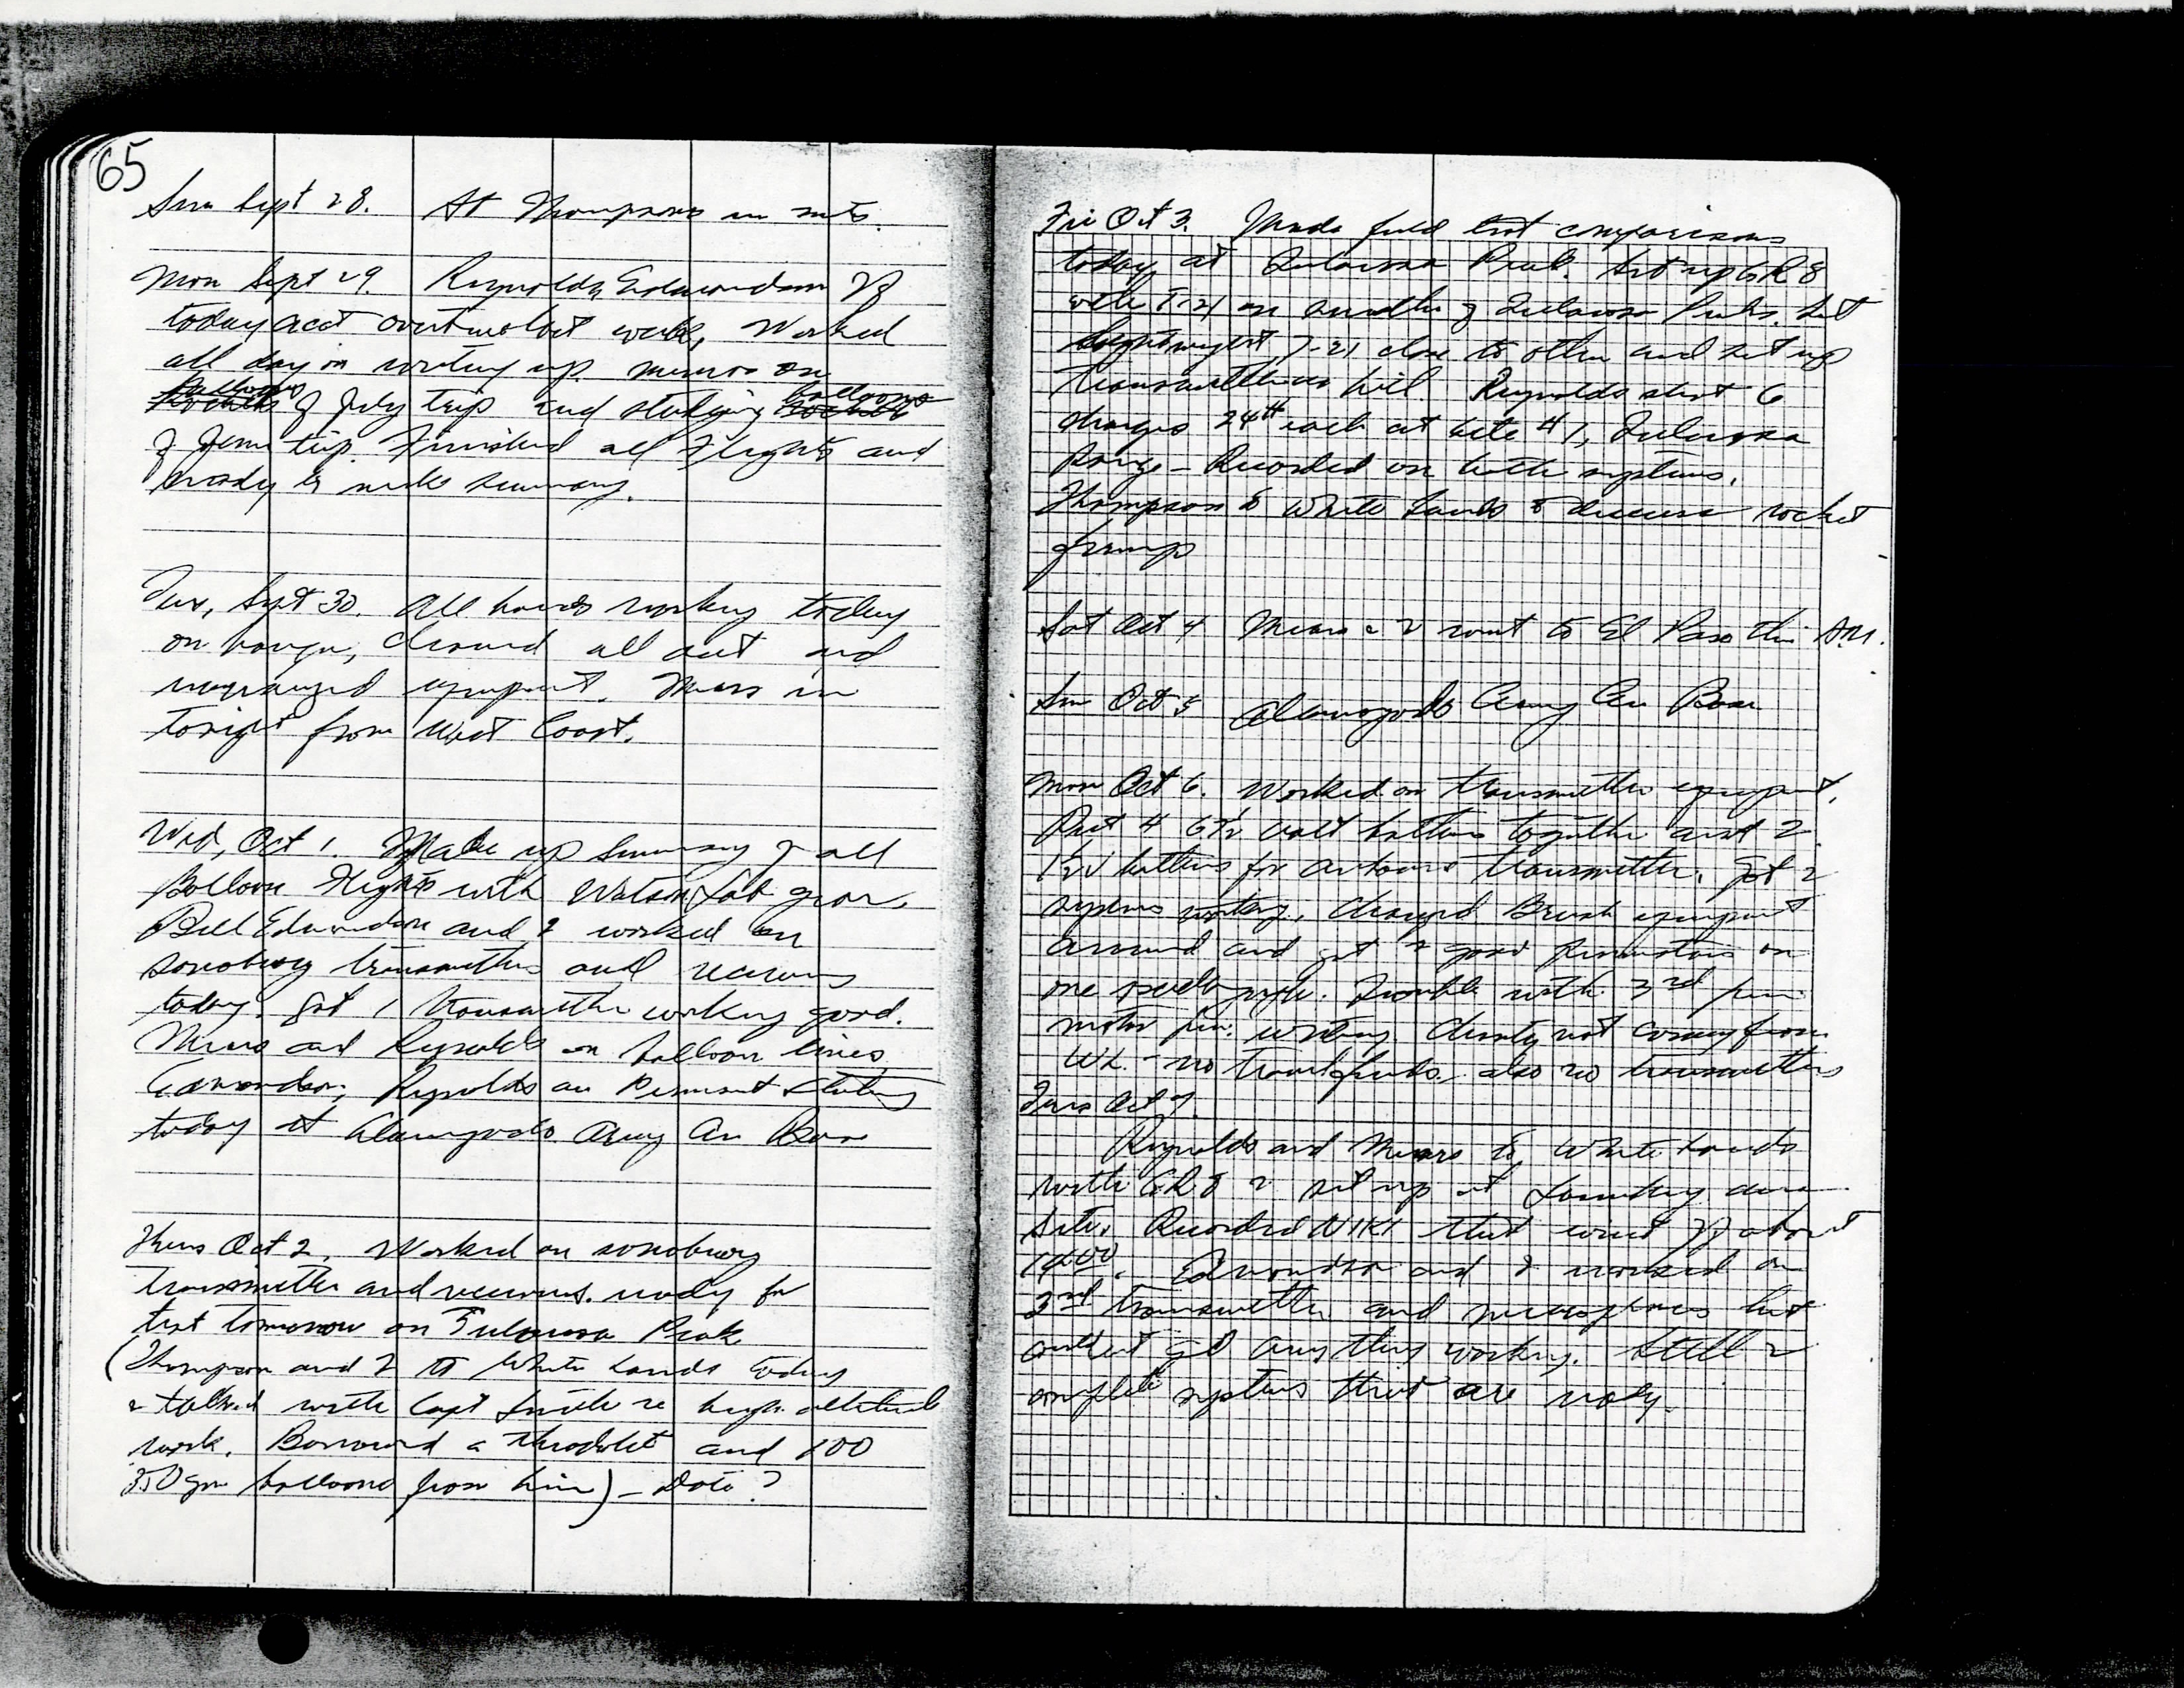 65
Sun Sept 28. At Thompsons in mts.
Mon Sept 29. Reynolds, Edmondson off
today acct overtime last week, Worked
all day on writing up memos on
balloons of July trip and studying balloons
of June trip. Finished all Flights and
ready to make summary.
Tues, Sept 30. All hands working today
on hangar, cleaned all out and
rearranged equipment. Mears in
tonight from West Coast.
Wed, Oct 1. Made up Summary of all
Balloon Flights with Watson Lab gear.
Bill Edmondson and I worked on
sonobuoy transmitters and receivers
today. Got 1 transmitter working good.
Mears and Reynolds on balloon lines
Edmondson, Reynolds on Permanent Status
today at Alamogordo Army Air Base
Thurs Oct 2. Worked on sonobuoy
transmitter and receivers. ready for
test tomorrow on Tularosa Peak
(Thompson and I to White Sands today
& talked with Capt Smith re high altitude
work. Borrowed a theodolite and 100
350 gm balloons from him) - Date?
Fri Oct 3. Made field test comparisons
today at Tularosa Peak. Set up GR8
with T-21 on smaller of Tularosa Peaks. Set
lightweight T-21 close to other and set up
transmitter hill. Reynolds shot 6
charges 24# each at site #1, Tularosa
Range - Recorded on both systems.
Thompson to White Sands to discuss rocket
firings
Sat Oct 4 Mears & I went to El Paso this A.M.
Sun Oct 5 Alamogordo Army Air Base
Mon Oct 6. Worked on transmitter equipment.
Put 4 67½ volt batteries together and 2
batteries for airborne transmitter. Got 2
systems working. Changed Brush equipment
around and got 2 good on
one Trouble with 3rd pen
motor pen. writing. not coming from
WL. - no also no transmitters
Tues Oct 7.
Reynolds and Mears to White Sands
with GR8 & set up at area
site. Recorded that went off about
1400. Edmondson and I worked on
3rd transmitter and microphones but
couldn't get anything working. Still 2
complete systems that are ready.